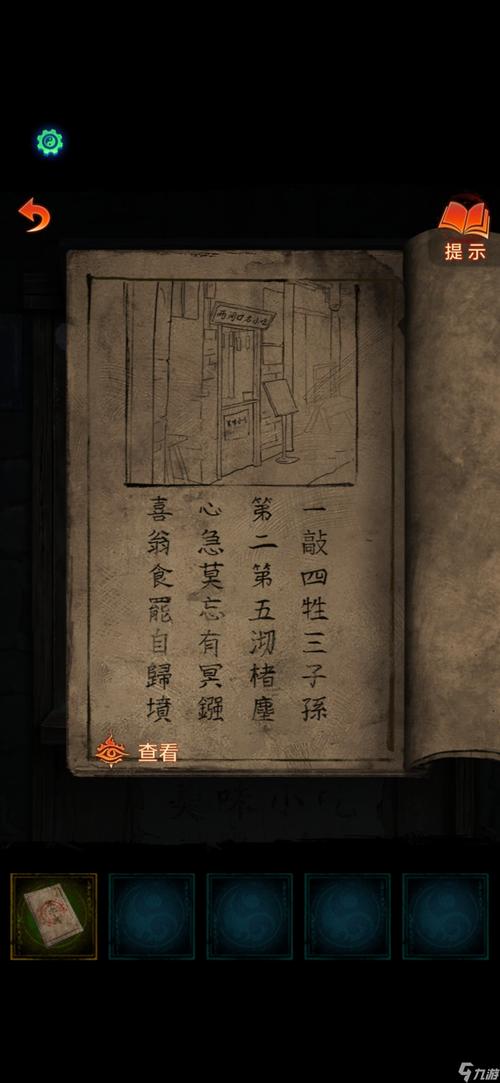 提示
一敲四牲三子孫
第二第五沏楮塵
心急莫忘有冥鏹
喜翁食罷自歸墳
查看
美味小吃
九游